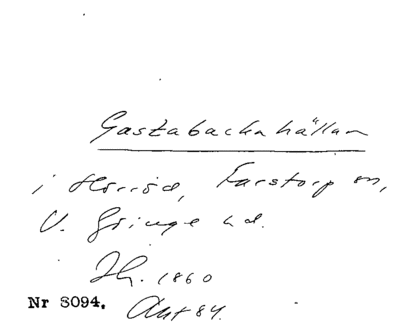 Gastabackahällan
i Hörröd, Farstorp sn,
V. Göinge hd.
Jh. 1860
Nr 8094. Akt 84.